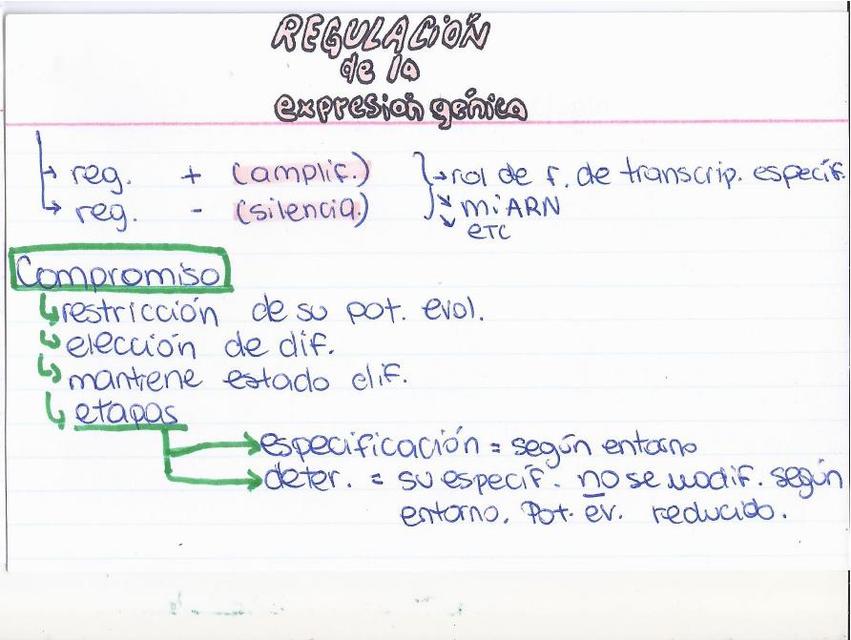 REGULACIÓN
de la
expresión génica
reg. + (amplif.) → rol de f. de transcrip. específ.
reg. - (silencia.) miARN
etc
Compromiso
restricción de su pot. evol.
elección de dif.
mantiene estado dif.
etapas
especificación = según entorno
deter. = su específ. no se modif. según
entorno. Pot. ev. reducido.